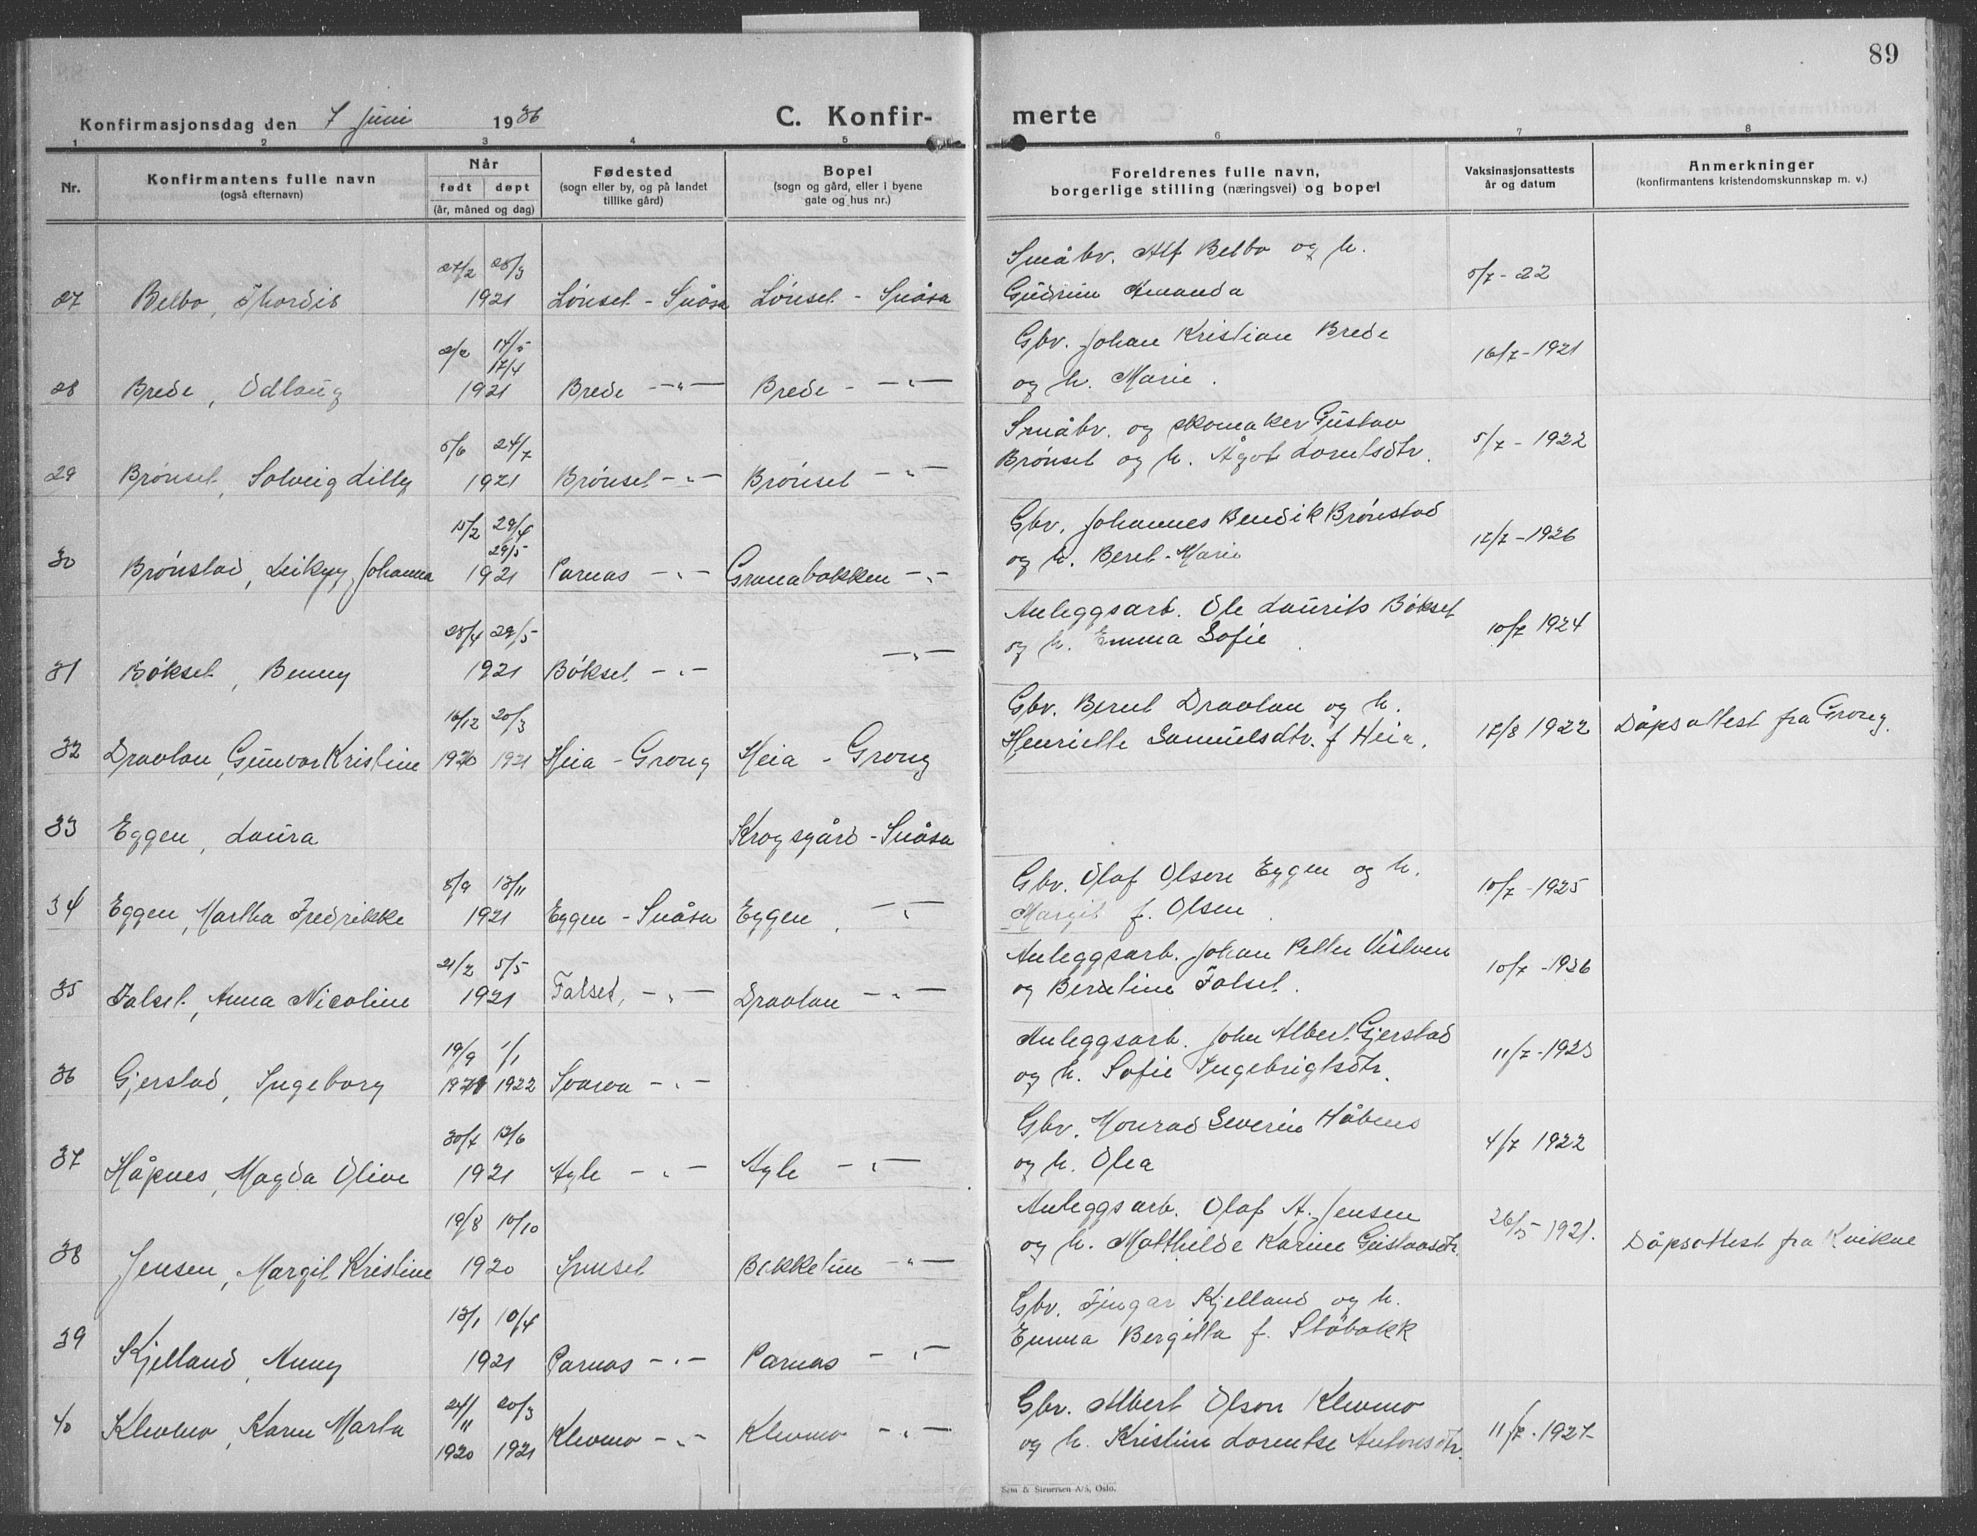 89
Konfirmasjonsdag den 7 Juni 1936
C. Konfirmerte
1 2 3 4 5 6 7 8
Nr.
Konfirmantens fulle navn
(også efternavn)
Når
født døpt
(år, måned og dag)
Fødested
(sogn eller by, og på landet
tillike gård)
Bopel
(sogn og gård, eller i byene
gate og hus nr.)
Foreldrenes fulle navn,
borgerlige stilling (næringsvei) og bopel
Vaksinasjonsattests
år og datum
Anmerkninger
(konfirmantens kristendomskunnskap m. v.)
27/2 28/3
Småbr. Alf Belbo og h.
27 Belbo, Thordis 1921 Lønset - Snåsa Lønset - Snåsa
Gudrun Amanda
5/7-22
2/2 17/5
17/4
Gbr. Johan Kristian Brede
28 Brede, Odlaug 1921 Brede -"- Brede -"-
og h. Marie.
16/7-1921
5/6 24/7
Småbr. og skomaker Gustav
29 Brønset, Solveig Lilly 1921 Brønset -"- Brønset -"-
Brønset og h. Ågot Lorntsdtr.
5/7 - 1922
15/2 29/4
29/5
Gbr. Johannes Bendik Brønstad
30 Brønstad, Johanna 1921 Parnas -"- Granabakken -"-
og h. Beret-Marie
17/7-1926
28/4 29/5
Anleggsarb. Ole Laurits Bökset
31 Bökset, Benny 1921 Bökset -"- -"-
og h. Emma Sofie
10/7 1924
16/12 20/3
Gbr. Bernt Dravlan og h.
32 Dravlan, Gunvor Kristine 1920 1921 Heia - Grong Heia - Grong
Henriette Samuelsdtr. f Heia.
17/8 1922
Dåpsattest fra Grong.
33 Eggen, Laura Krogsgård - Snåsa
8/9 13/11
Gbr. Olaf Olsen Eggen og h.
34 Eggen, Martha Fredrikke 1921 Eggen - Snåsa Eggen, -"-
Margit f. Olsen.
10/7-1925
21/2 5/5
Anleggsarb. Johan Petter Vistven
35 Falset, Anna Nicoline 1921 Falset, -"- Dravlan -"-
og Berntine Falset.
10/7-1936
19/9 1/1
Anleggsarb. John Albert Gjerstad
36 Gjerstad, Ingeborg 1921 1922 Svarva -"-
og h. Sofie Ingebrigtsdtr.
11/7-1923
30/4 12/6
Gbr. Monrad Severin Håbnes
37 Håpnes, Magda Olive 1921 Agle -"- Agle -"-
og h. Olea
4/7 1922
19/8 10/10
Anleggsarb. Olaf A. Jensen
38 Jensen, Margit Kristine 1920 Innset Bekketun -"-
og h. Matthilde Karine Gustavsdtr.
26/5-1921.
Dåpsattest fra Kvikne
13/1 10/4
Gbr. Fingar Kjelland og h.
39 Kjelland, Anny 1921 Parnas -"- Parnas -"-
Emma Bergitta f. Stöbakk
24/11 20/3
Gbr. Albert Olson Klevmo
40 Klevmo, Karen Marta 1920 1921 Klevmo -"- Klevmo -"-
og h. Kristine Lorentse Antonsdtr.
11/7-1927-
Sem & Stenersen A/S, Oslo.